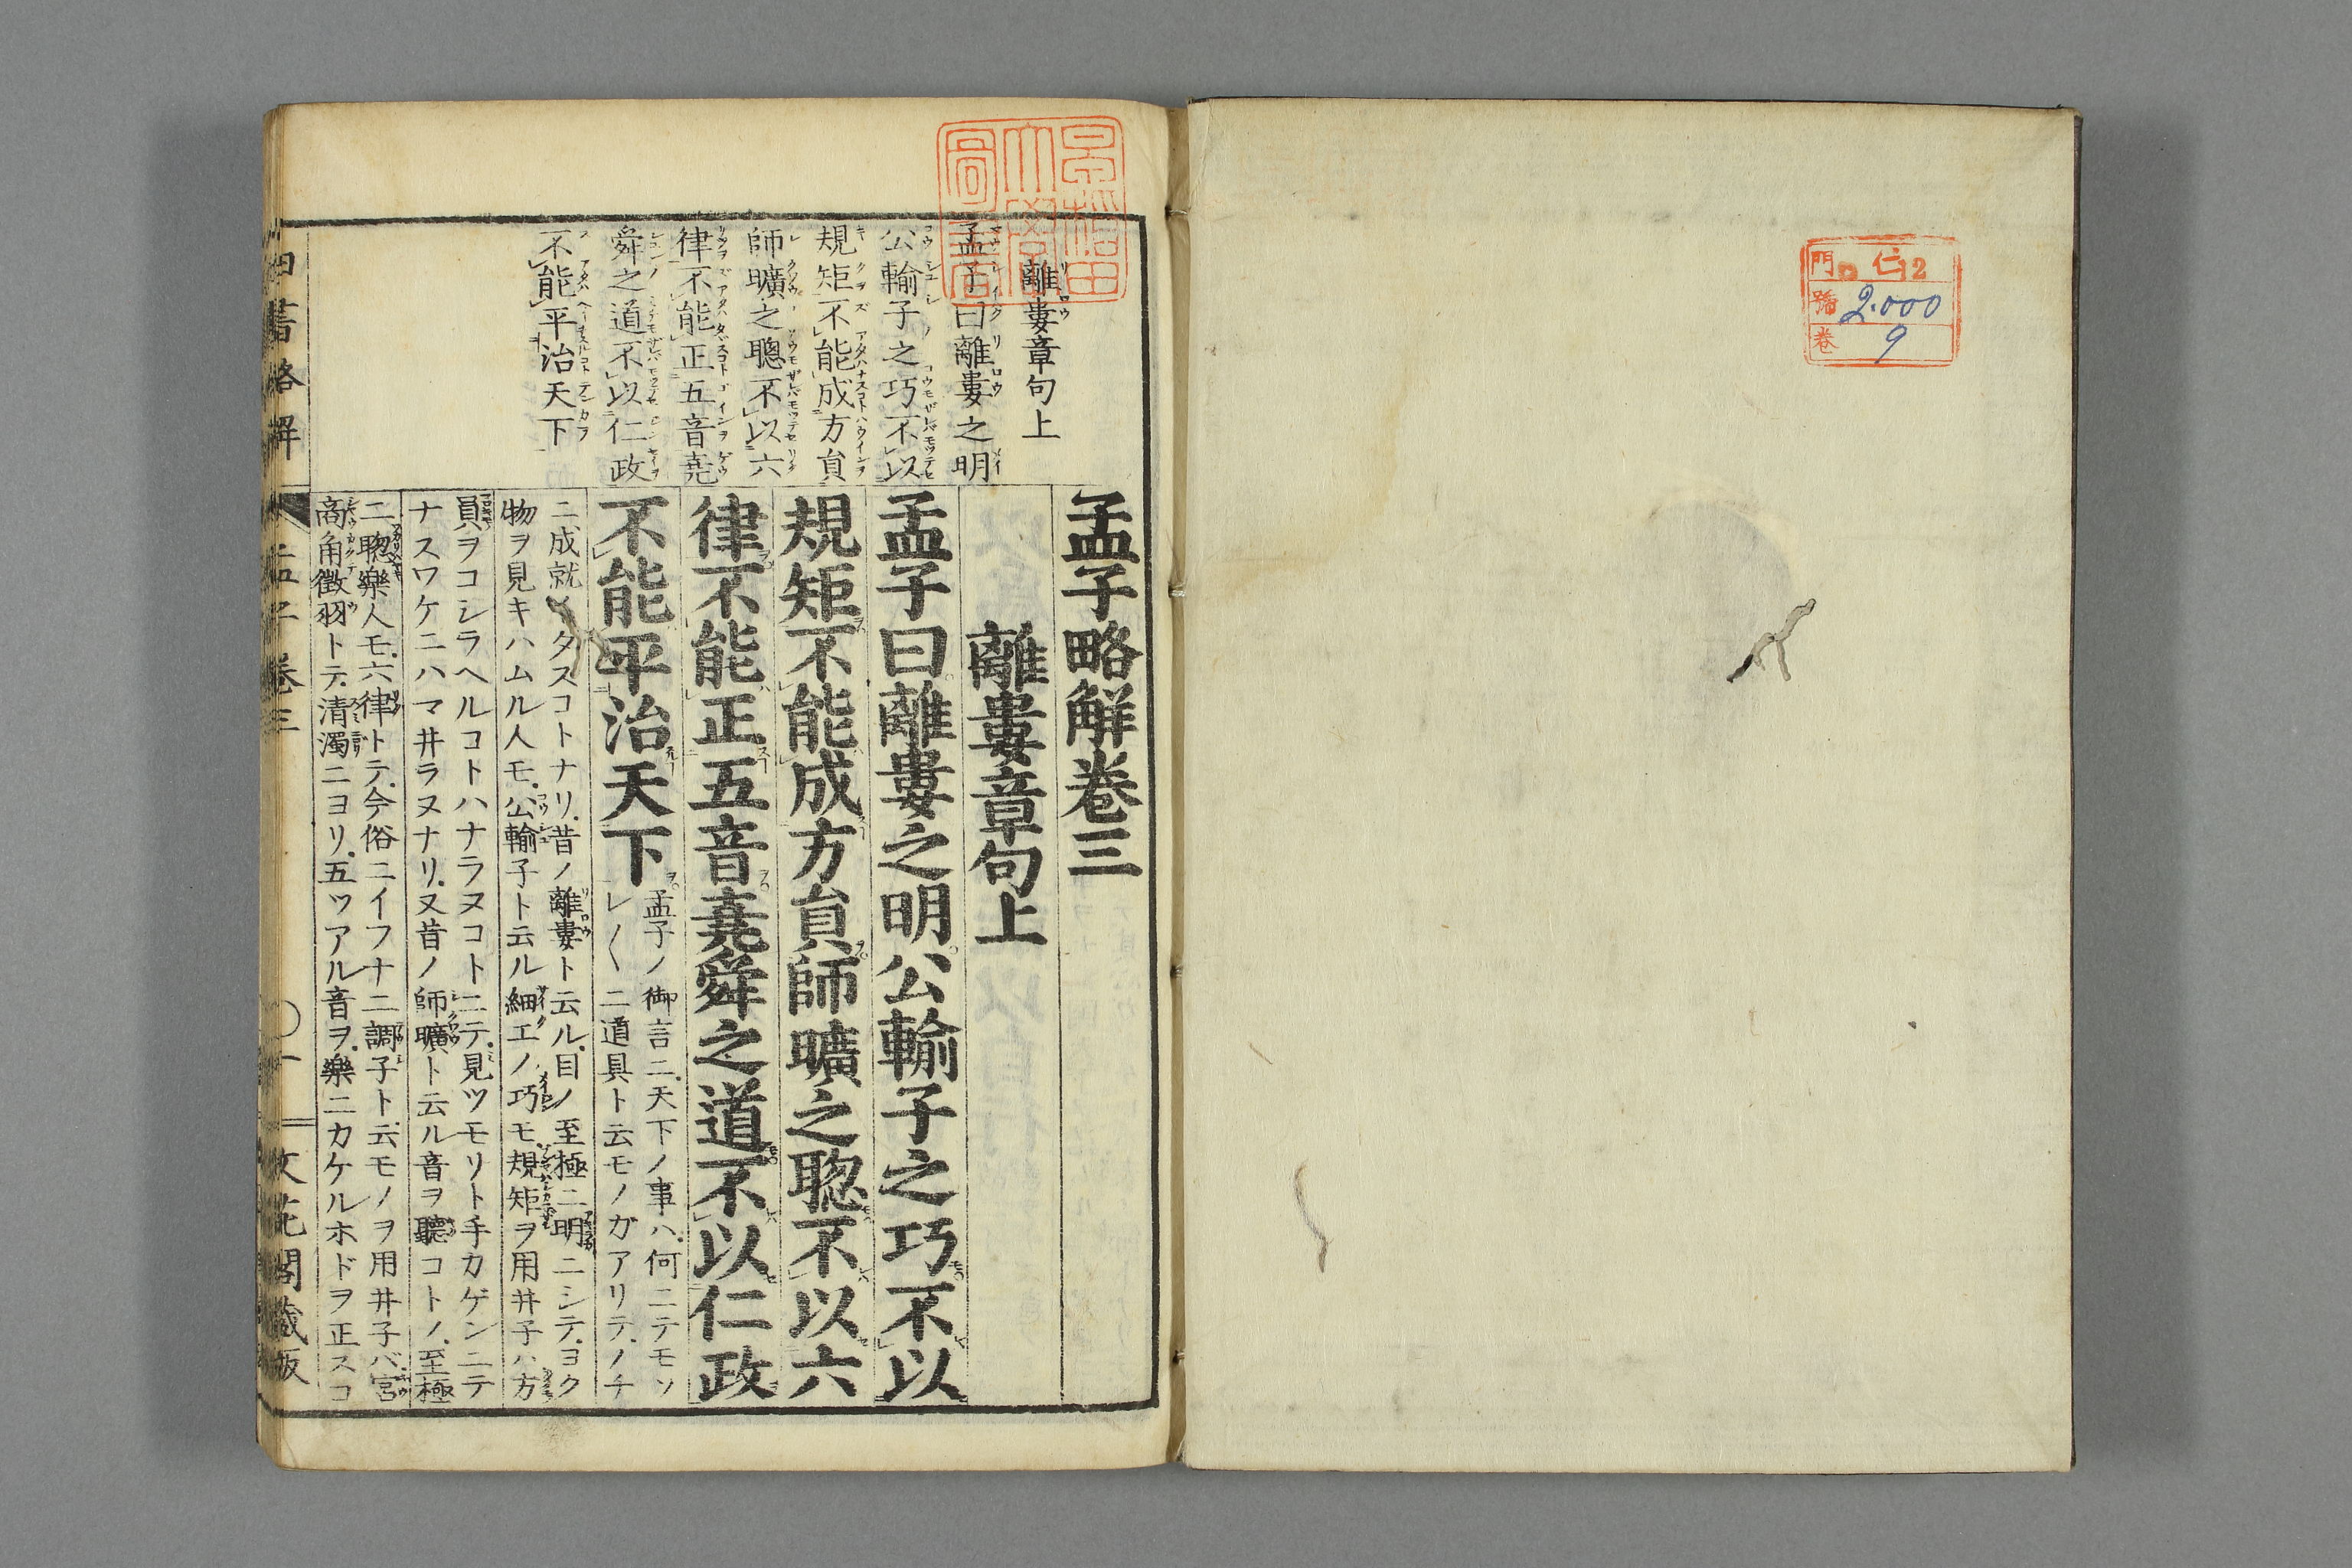 門 仁12
號 2.000
卷 9
早稲田大學圖書
離婁章句上
孟子曰離婁之明
公輸子之巧不以
規矩不能成方貟
師曠之聰不以六
律不能正五音堯
舜之道不以仁政
不能平治天下
孟子略解卷三
離婁章句上
孟子曰離婁之明公輸子之巧不以
規矩不能成方貟師曠之聡不以六
律不能正五音堯舜之道不以仁政
不能平治天下
孟子ノ御言ニ天下ノ事ハ何ニテモソ
レ〱ニ道具ト云モノガアリテノチ
ニ成就イタスコトナリ昔ノ離婁ト云ル目ノ至極ニ明ニシテヨク
物ヲ見キハムル人モ公輸子ト云ル細エノ巧モ規矩ヲ用井子ハ方
員ヲコシラヘルコトハナラヌコトニテ見ツモリト手カゲンニテ
ナスワケニハマ井ラヌナリ又昔ノ師曠ト云ル音ヲ聽コトノ至極
ニ聡樂人モ六律トテ今俗ニイフナニ調子ト云モノヲ用井子バ宮
商角徵羽トテ清濁ニヨリ五ツアル音ヲ樂ニカケルホドヲ正スコ
四書略解 孟子卷三 〇一 文花閣藏板